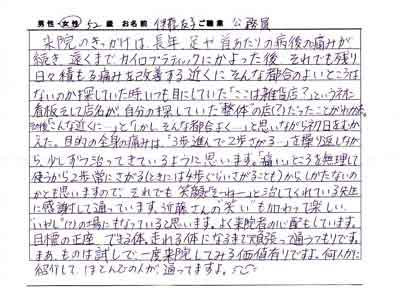 男性・女性 52歳 お名前 伊藤友子 ご職業 公務員
来院のきっかけは、長年、足や首あたりの病後の痛みが
続き、遠くまでカイロプラクティックにかよった後、それでも残り
日々積もる痛みを改善する近くにそんな都合のよいところは
ないのか探していた時いつも目にしていた「ここは雑貨店？」という
看板そして店名が、自分の探していた"整体"の店(?)だったことがわかり
こんな近くに…」と「しかしそんな都合よく…」と思いながら初日をむか
えた。目的の全身の痛みは、「3歩進んで2歩さがる…」を繰り返しなが
ら、少しずつ治ってきているように思います。"痛い"ところを無理して
使うから2歩常にさがる(ときには4歩ぐらいさがることも)からしかたないの
かとも思いますので、それでも笑顔で と治してくれている先生
に感謝して通っています。近藤さんの"笑い"も加わって楽しい
いやしの場にもなっていると思います。よく来院者が 配もしています。
目標の正座、できる体、走れる体になるまで頑張って通うつもりです。
まあ、ものは試しで、一度来院してみる価値有りですよ。何人かに
紹介して、ほとんどの人が、通ってますよ。